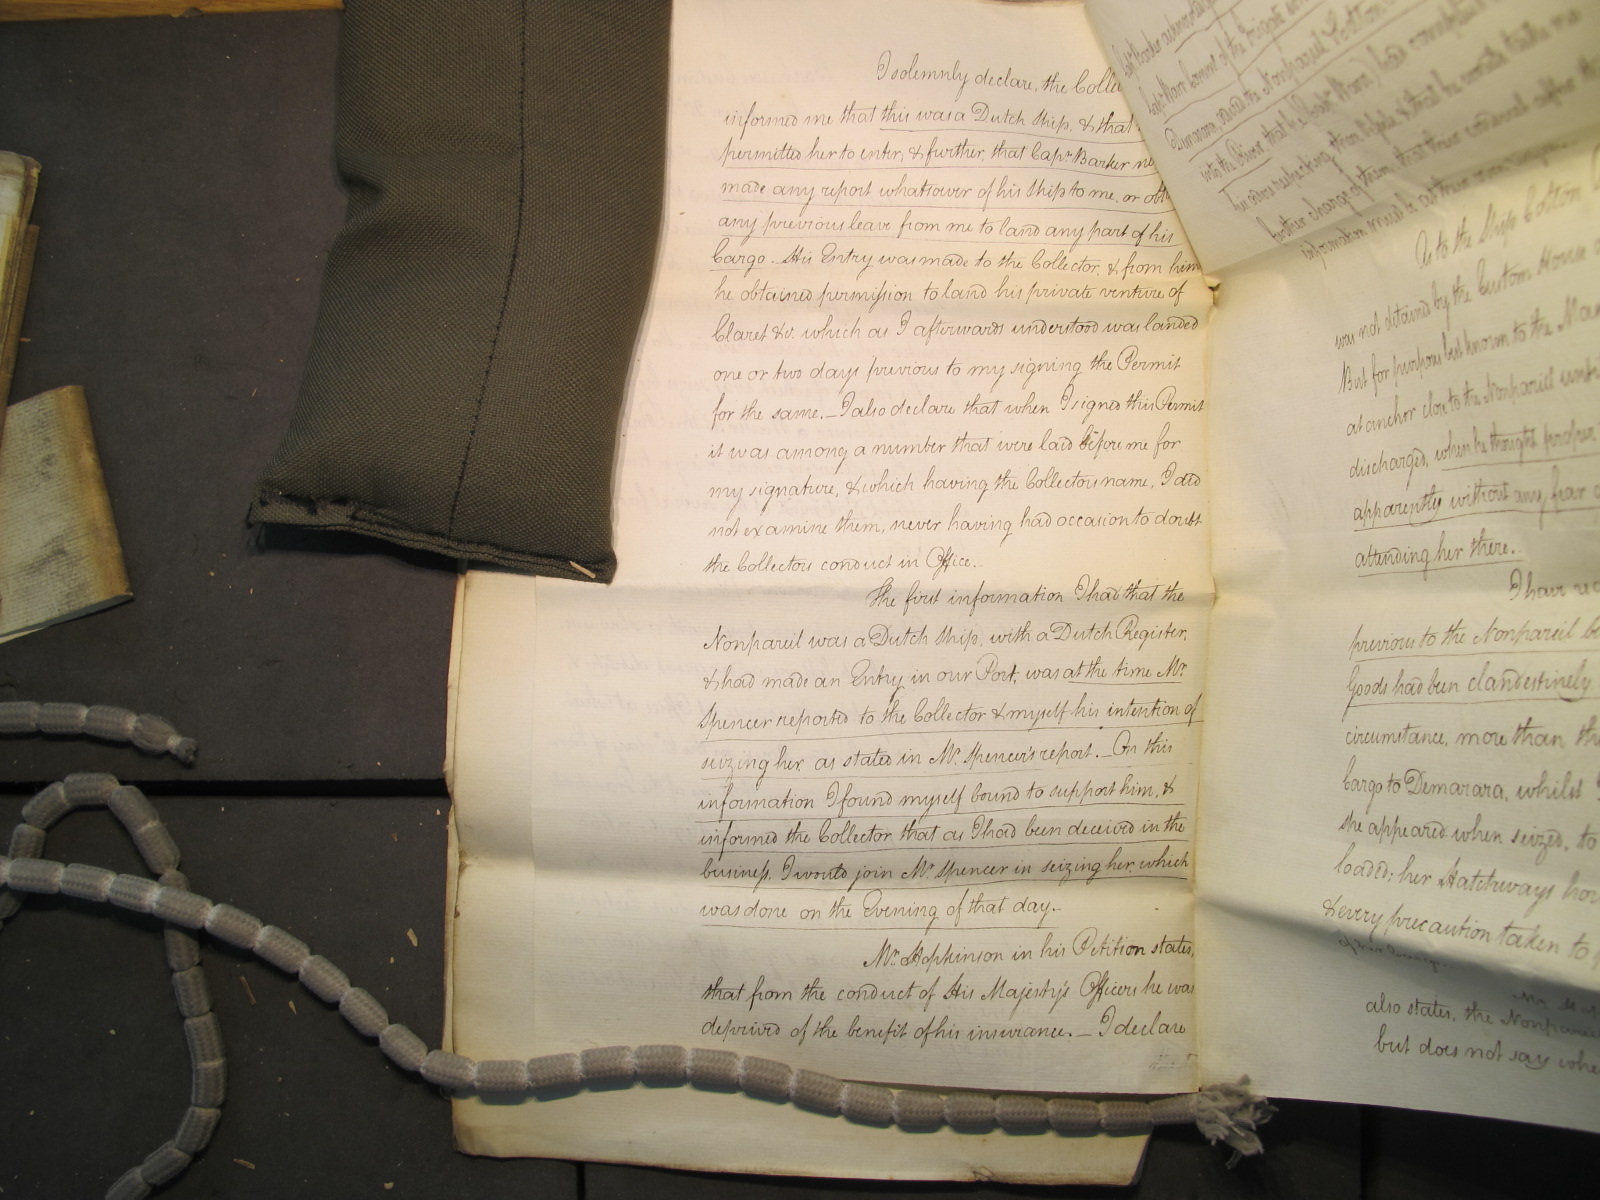 I solemnly declare, the Colle
informed me that this was a Dutch Ship, & that
permitted her to enter, & further, that Capt. Barker ne
made any report whatsoever of his Ship to me, or obt
any previous leave from me to land any part of his
Cargo. His Entry was made to the Collector, & from him
he obtained permission to land his private venture of
Claret &c. which as I afterwards understood was landed
one or two days previous to my signing the Permit
for the same. — I also declare that when I signed this Permit
it was among a number that were laid before me for
my signature, & which having the Collectors name, I did
not examine them, never having had occasion to doubt
the Collectors conduct in Office. —
The first information I had that the
Nonpareil was a Dutch Ship, with a Dutch Register,
& had made an Entry in our Port, was at the time Mr.
Spencer reported to the Collector & myself his intention of
seizing her, as stated in Mr. Spencer's report. — On this
information I found myself bound to support him, &
informed the Collector that as I had been deceived in the
business, I would join Mr. Spencer in seizing her, which
was done on the Evening of that day. —
Mr. Hopkinson in his Petition states,
that from the conduct of His Majesty's Officers he was
deprived of the benefit of his insurance. — I declare
into the River, that he (Capt. Warr) had
further charge of them, that they continued
As to the Ship Cotton
was not detained by the Custom House
But for purposes best known to the Mas
at anchor close to the Nonpareil until
discharged, when he thought proper
apparently without any fear
attending her there.
I have re
previous to the Nonpareil b
Goods had been clandestinely
circumstance, more than th
Cargo to Demarara, whilst
she appeared when seized, to
loaded; her Hatchways
& every precaution taken to
also states, the Nonpareil
but does not say whe